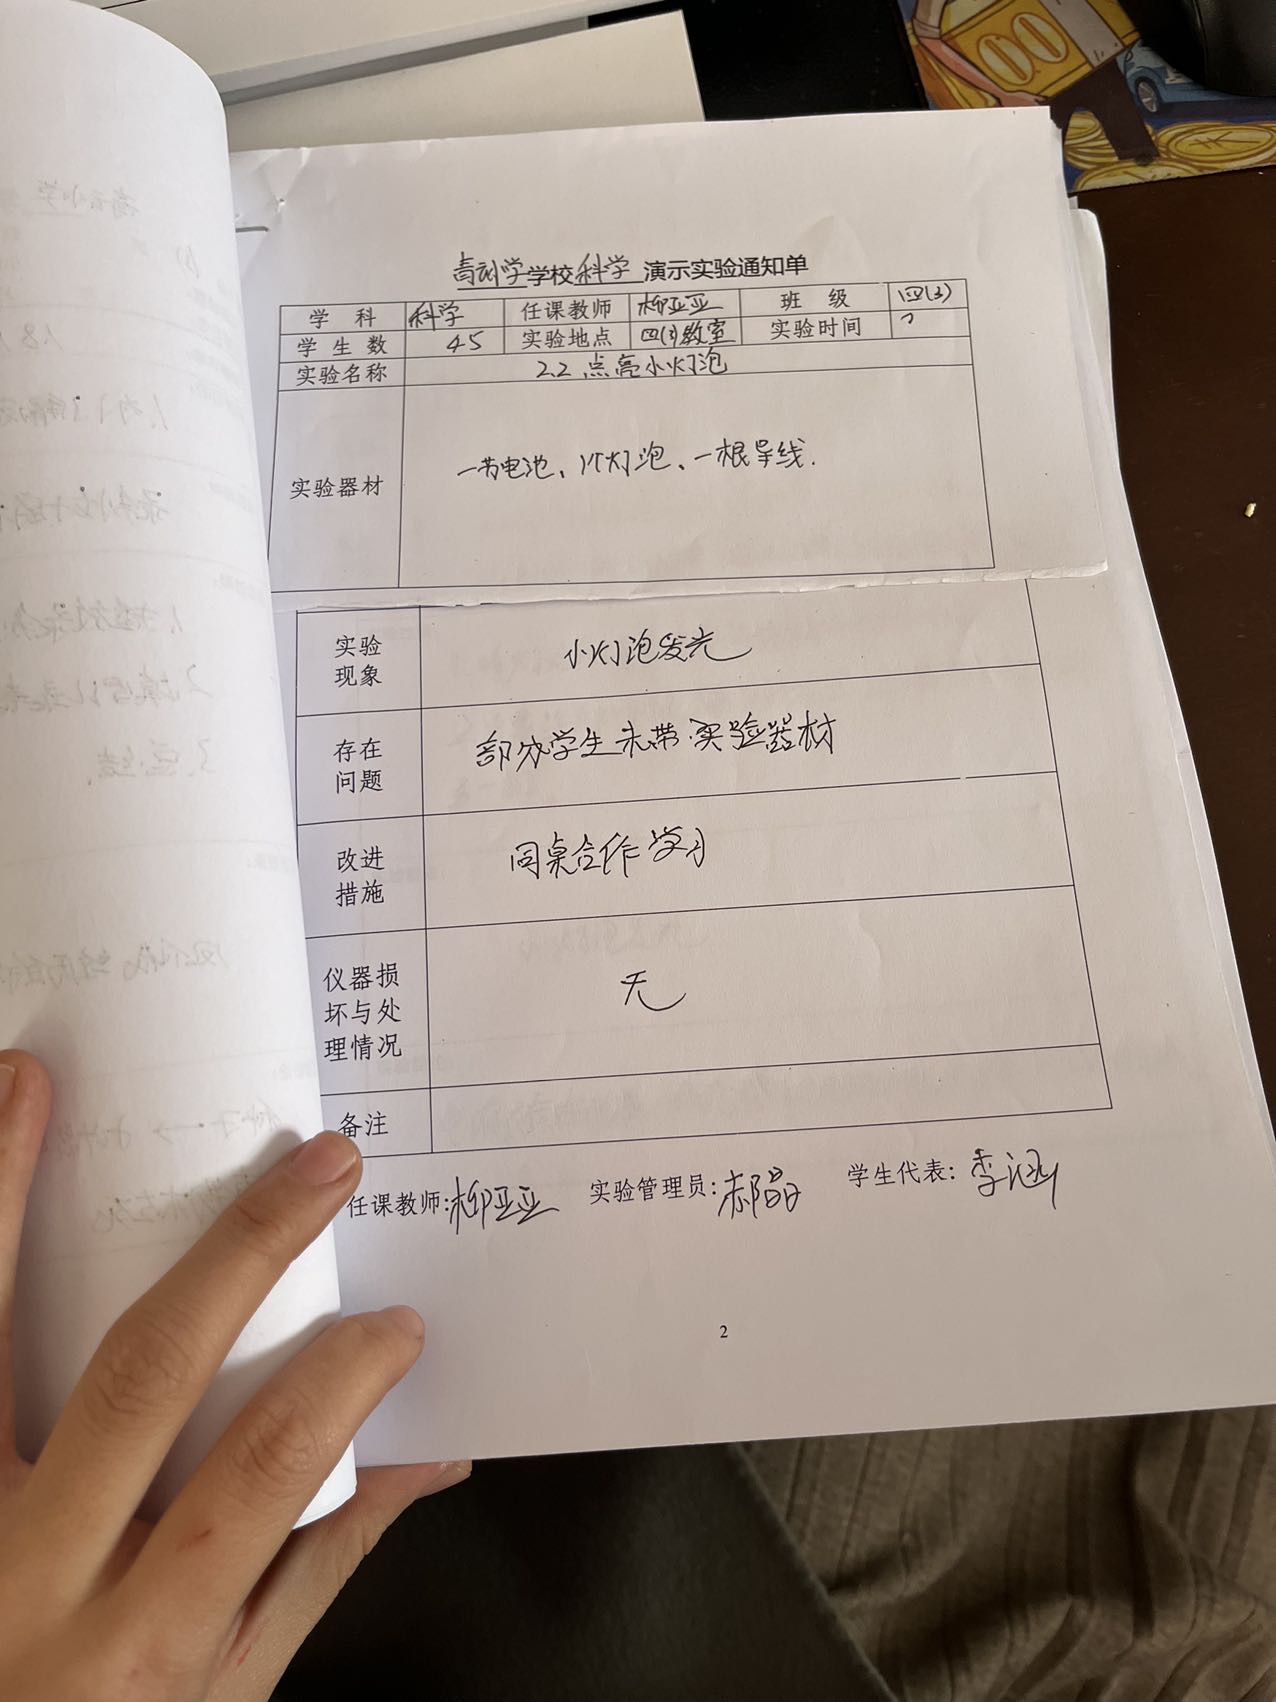 学校科学 演示实验通知单
学 科 科学 任课教师 柳亚亚 班 级 四(3)
学 生 数 45 实验地点 四(3)教室 实验时间
实验名称 2.2 点亮小灯泡
实验器材 一节电池、小灯泡、一根导线.
实验
现象 小灯泡发光
存在
问题 部分学生未带实验器材
改进
措施 同桌合作学习
仪器损
坏与处
理情况 无
备注
任课教师:柳亚亚 实验管理员:郝晶 学生代表:李涵
2